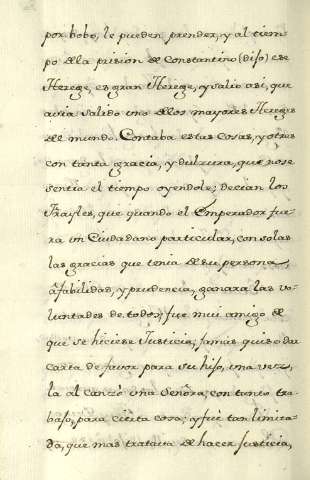 por bobo, le pueden prender, y al tiem-
po della prision de Constantino (dijo) ese
Herege, es gran Herege, y salio asi, que
avia salido uno dellos mayores Hereges
del mundo. Contaba estas cosas, y otras
con tanta gracia, y dulzura, que no se
sentia el tiempo oyendole; decian los
Frayles, que quando el Emperador fue-
ra un Ciudadano particular, con solas
las gracias que tenia de su persona,
afabilidad, y prudencia, ganara las vo-
luntades de todos; fue mui amigo de
que se hiciese Justicia, jamas quiso dar
carta de favor para su hijo, una vez,
la alcanzò una Señora, con tanto tra-
bajo, para cierta cosa; y fue tan limita-
da, que mas trataba de hacer Justicia,